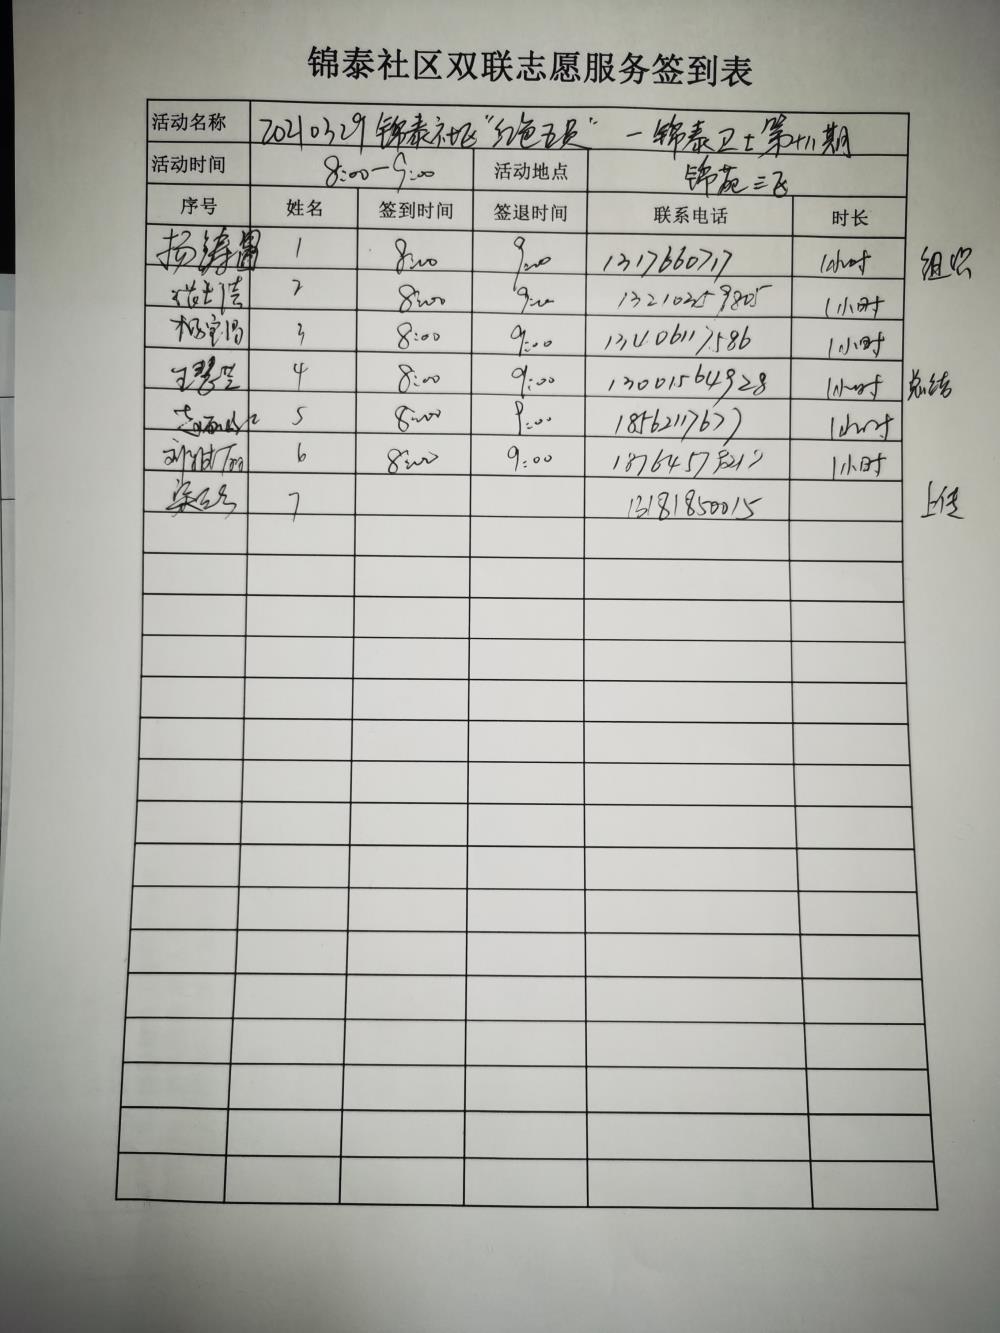 锦泰社区双联志愿服务签到表
活动名称 20210329锦泰社区"红色五员"—锦泰卫士第十八期
活动时间 8:00-9:00 活动地点 锦苑三区
序号 姓名 签到时间 签退时间 联系电话 时长
1 8:00 9:00 1317660717 1小时 组织
2 8:00 9:00 13210359805 1小时
3 8:00 9:00 13406117586 1小时
王慧兰 4 8:00 9:00 13001564928 1小时 总结
5 8:00 9:00 18562117677 1小时
6 8:00 9:00 1小时
7 13181850015 上传